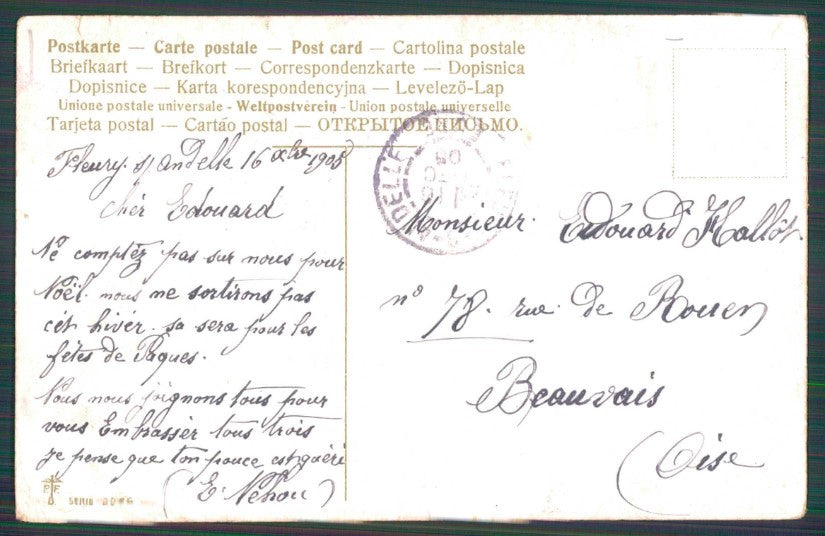 Postkarte — Carte postale — Post card — Cartolina postale
Briefkaart — Brefkort — Correspondenzkarte — Dopisnica
Dopisnice — Karta korespondencyjna — Levelező-Lap
Unione postale universale - Weltpostverein - Union postale universelle
Tarjeta postal — Cartão postal — ОТКРЫТОЕ ПИСЬМО.
Fleury s/andelle 16 xbre 1905
chér Edouard
Né comptéz pas sur nous pour
Noël. nous me sortirons pas
cét hivér. sa sera pour les
fêtes de Pâques.
Nous nous joignons tous pour
vous Embrassér tous trois
je pense que ton pouce est guéri
(E. Néhou)
P.F.
SERIE
ANDELLE
05
Monsieur Edouard Hallot
n° 78. rue de Rouen
Beauvais
(Oise